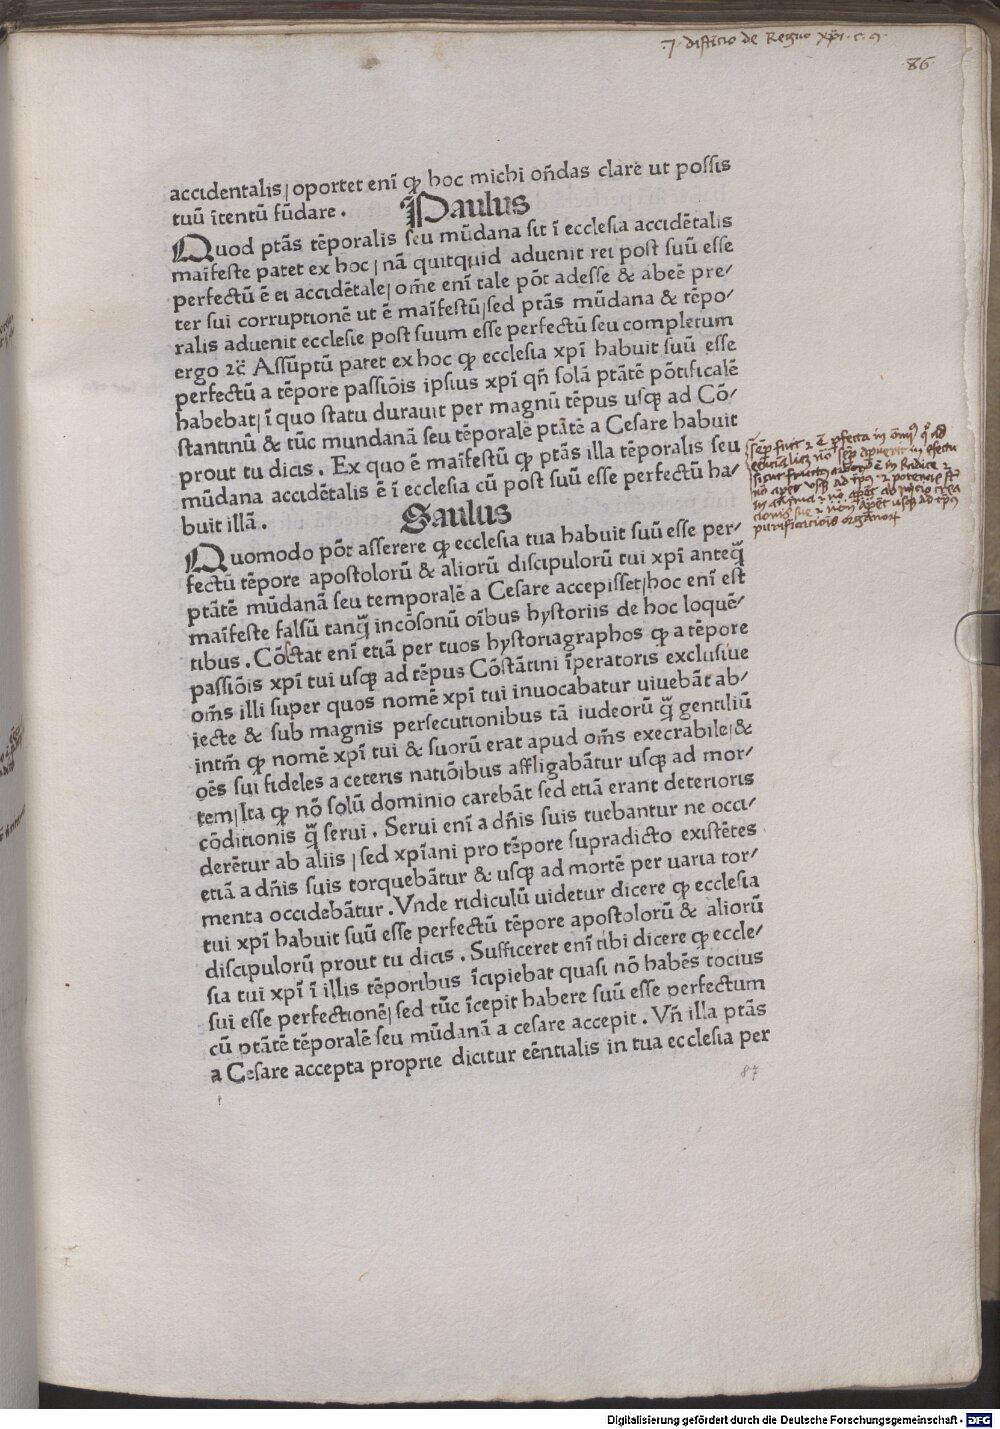 .7. difficio de Regno xp̄i. c. 9.
86
accidentalis / oportet enī ꝙ hoc michi on̄das clare ut possis
tuū ītentū fūdare .
Paulus
Quod ptās tēporalis seu mūdana sit ī ecclesia accidētalis
maīfeste patet ex hoc / nā quitquid aduenit rei post suū esse
perfectū ē ei accidētale / om̄e enī tale pōt adesse & abeē pre/
ter sui corruptionē ut ē maīfestū / sed ptās mūdana & tēpo/
ralis aduenit ecclesie post suum esse perfectū seu completum
ergo ⁊c̄ Assūptū patet ex hoc ꝙ ecclesia xpī habuit suū esse
perfectū a tēpore passiōis ipsius xpī qn̄ solā ptātē pōtificalē
habebat / ī quo statu durauit per magnū tēpus usqꝫ ad Cō/
stantinū & tūc mundanā seu tēporalē ptātē a Cesare habuit
prout tu dicis . Ex quo ē maīfestū ꝙ ptās illa tēporalis seu
mūdana accidētalis ē ī ecclesia cū post suū esse perfectū ha/
buit illā .
Saulus
Quomodo pōt asserere ꝙ ecclesia tua habuit suū esse per/
fectū tēpore apostolorū & aliorū discipulorū tui xpī anteq̄
ptātē mūdanā seu temporalē a Cesare accepisset / hoc enī est
maīfeste falsū tanq̄ incōsonū oībus hystoriis de hoc loquē/
tibus . Cōstat enī etiā per tuos hystoriagraphos ꝙ a tēpore
passiōis xpī tui usqꝫ ad tēpus Cōstātini īperatoris exclusiue
om̄s illi super quos nomē xpī tui inuocabatur uiuebāt ab/
iecte & sub magnis persecutionibus tā iudeorū q̄ gentiliū
intm̄ ꝙ nomē xpī tui & suorū erat apud om̄s execrabile / &
oēs sui fideles a ceteris natiōibus affligabātur usqꝫ ad mor/
tem / Ita ꝙ nō solū dominio carebāt sed etiā erant deterioris
cōditionis q̄ serui . Serui enī a dn̄is suis tuebantur ne occi/
derētur ab aliis / sed xpīani pro tēpore supradicto existētes
etiā a dn̄is suis torquebātur & usqꝫ ad mortē per uaria tor/
menta occidebātur . Vnde ridiculū uidetur dicere ꝙ ecclesia
tui xpī habuit suū esse perfectū tēpore apostolorū & aliorū
discipulorū prout tu dicis . Sufficeret enī tibi dicere ꝙ eccle/
sia tui xpī ī illis tēporibus īcipiebat quasi nō habēs tocius
sui esse perfectionē / sed tūc īcepit habere suū esse perfectum
cū ptātē tēporalē seu mūdanā a cesare accepit . Vn̄ illa ptās
a Cesare accepta proprie dicitur eēntialis in tua ecclesia per
87
semp̄ fuit ⁊ ē pfecta in om̄iꝫ q̄ ad
sicut fructus arboris ē in Radice ⁊
purificationis organorꝝ
Digitalisierung gefördert durch die Deutsche Forschungsgemeinschaft - DFG